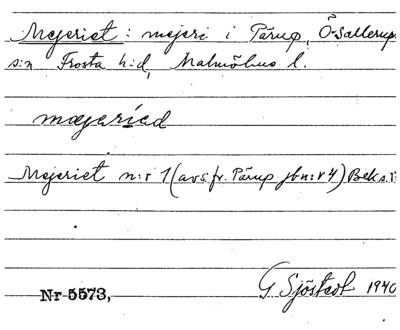 Mejeriet: mejeri i Pärup, Ö-Sallerup
s:n Frosta h:d, Malmöhus l.
mæjeríed
Mejeriet n:r 1 (avs. fr. Pärup jbn:r 4) Bek s. 1
Nr 5573,
G Sjöstedt 1940